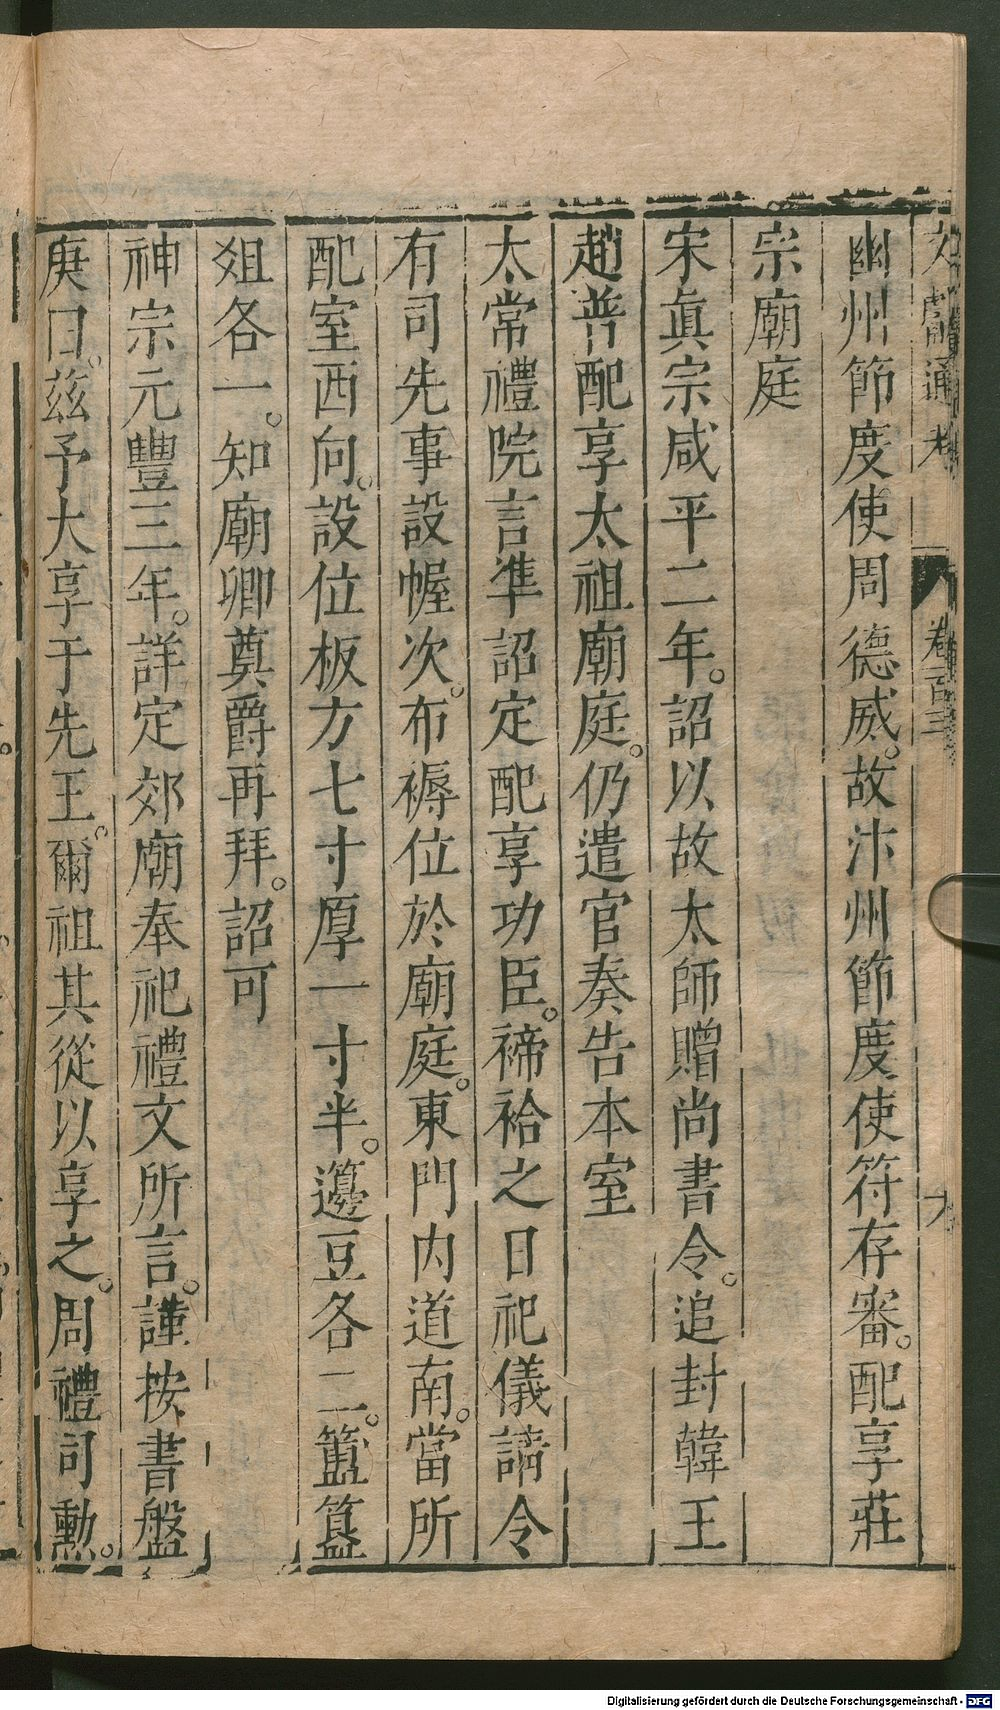 文獻通考 卷一百三
幽州節度使周德威。故汴州節度使符存審。配享莊
宗廟庭
宋眞宗咸平二年。詔以故太師贈尚書令。追封韓王
趙普配享太祖廟庭。仍遣官奏告本室
太常禮院言準詔定配享功臣。禘祫之日祀儀請令
有司先事設幄次。布褥位於廟庭。東門內道南。當所
配室西向。設位板方七寸厚一寸半。籩豆各二。簠簋
俎各一。知廟卿奠爵再拜。詔可
神宗元豐三年。詳定郊廟奉祀禮文所言。謹按書盤
庚曰。茲予大享于先王。爾祖其從以享之。周禮司勲。
Digitalisierung gefördert durch die Deutsche Forschungsgemeinschaft - DFG